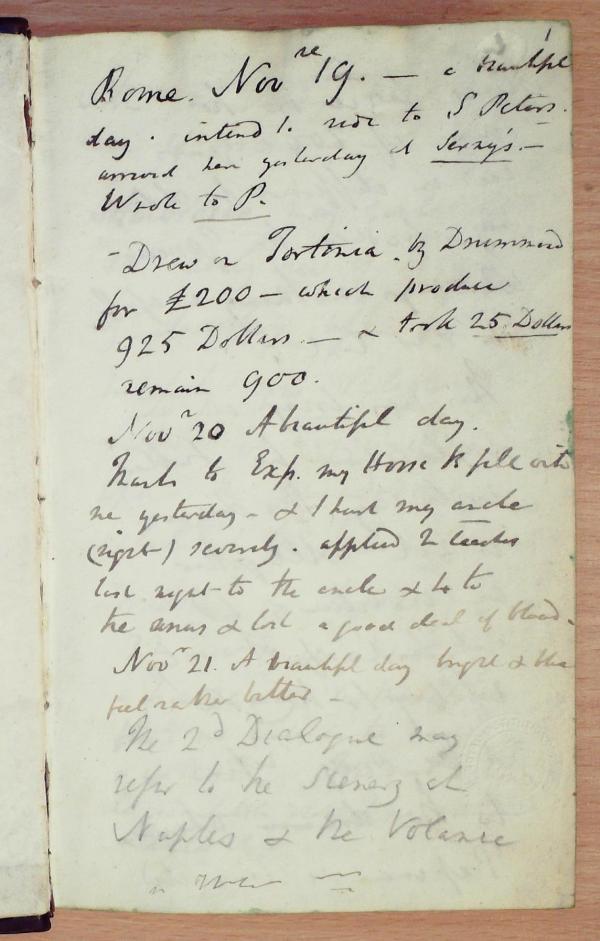 1
Rome. Novre 19. — a beautiful
day. intend to ride to S Peters.
arrived here yesterday at Serny's. —
Wrote to P.
– Drew on Tortonia by Drummond
for £200 — which produce
925 Dollars. — & took 25 Dollars
remain 900.
Novr 20 A beautiful day.
Thanks to my Horse fell with
me yesterday – & I hurt my ancle
(right) severely. applied 2 leeches
last night to the ancle & 4 to
the & lost a good deal of blood –
Novr 21. A beautiful day bright &
feel rather better –
The 2d Dialogue may
refer to the Scenery at
Naples & the Volcanic